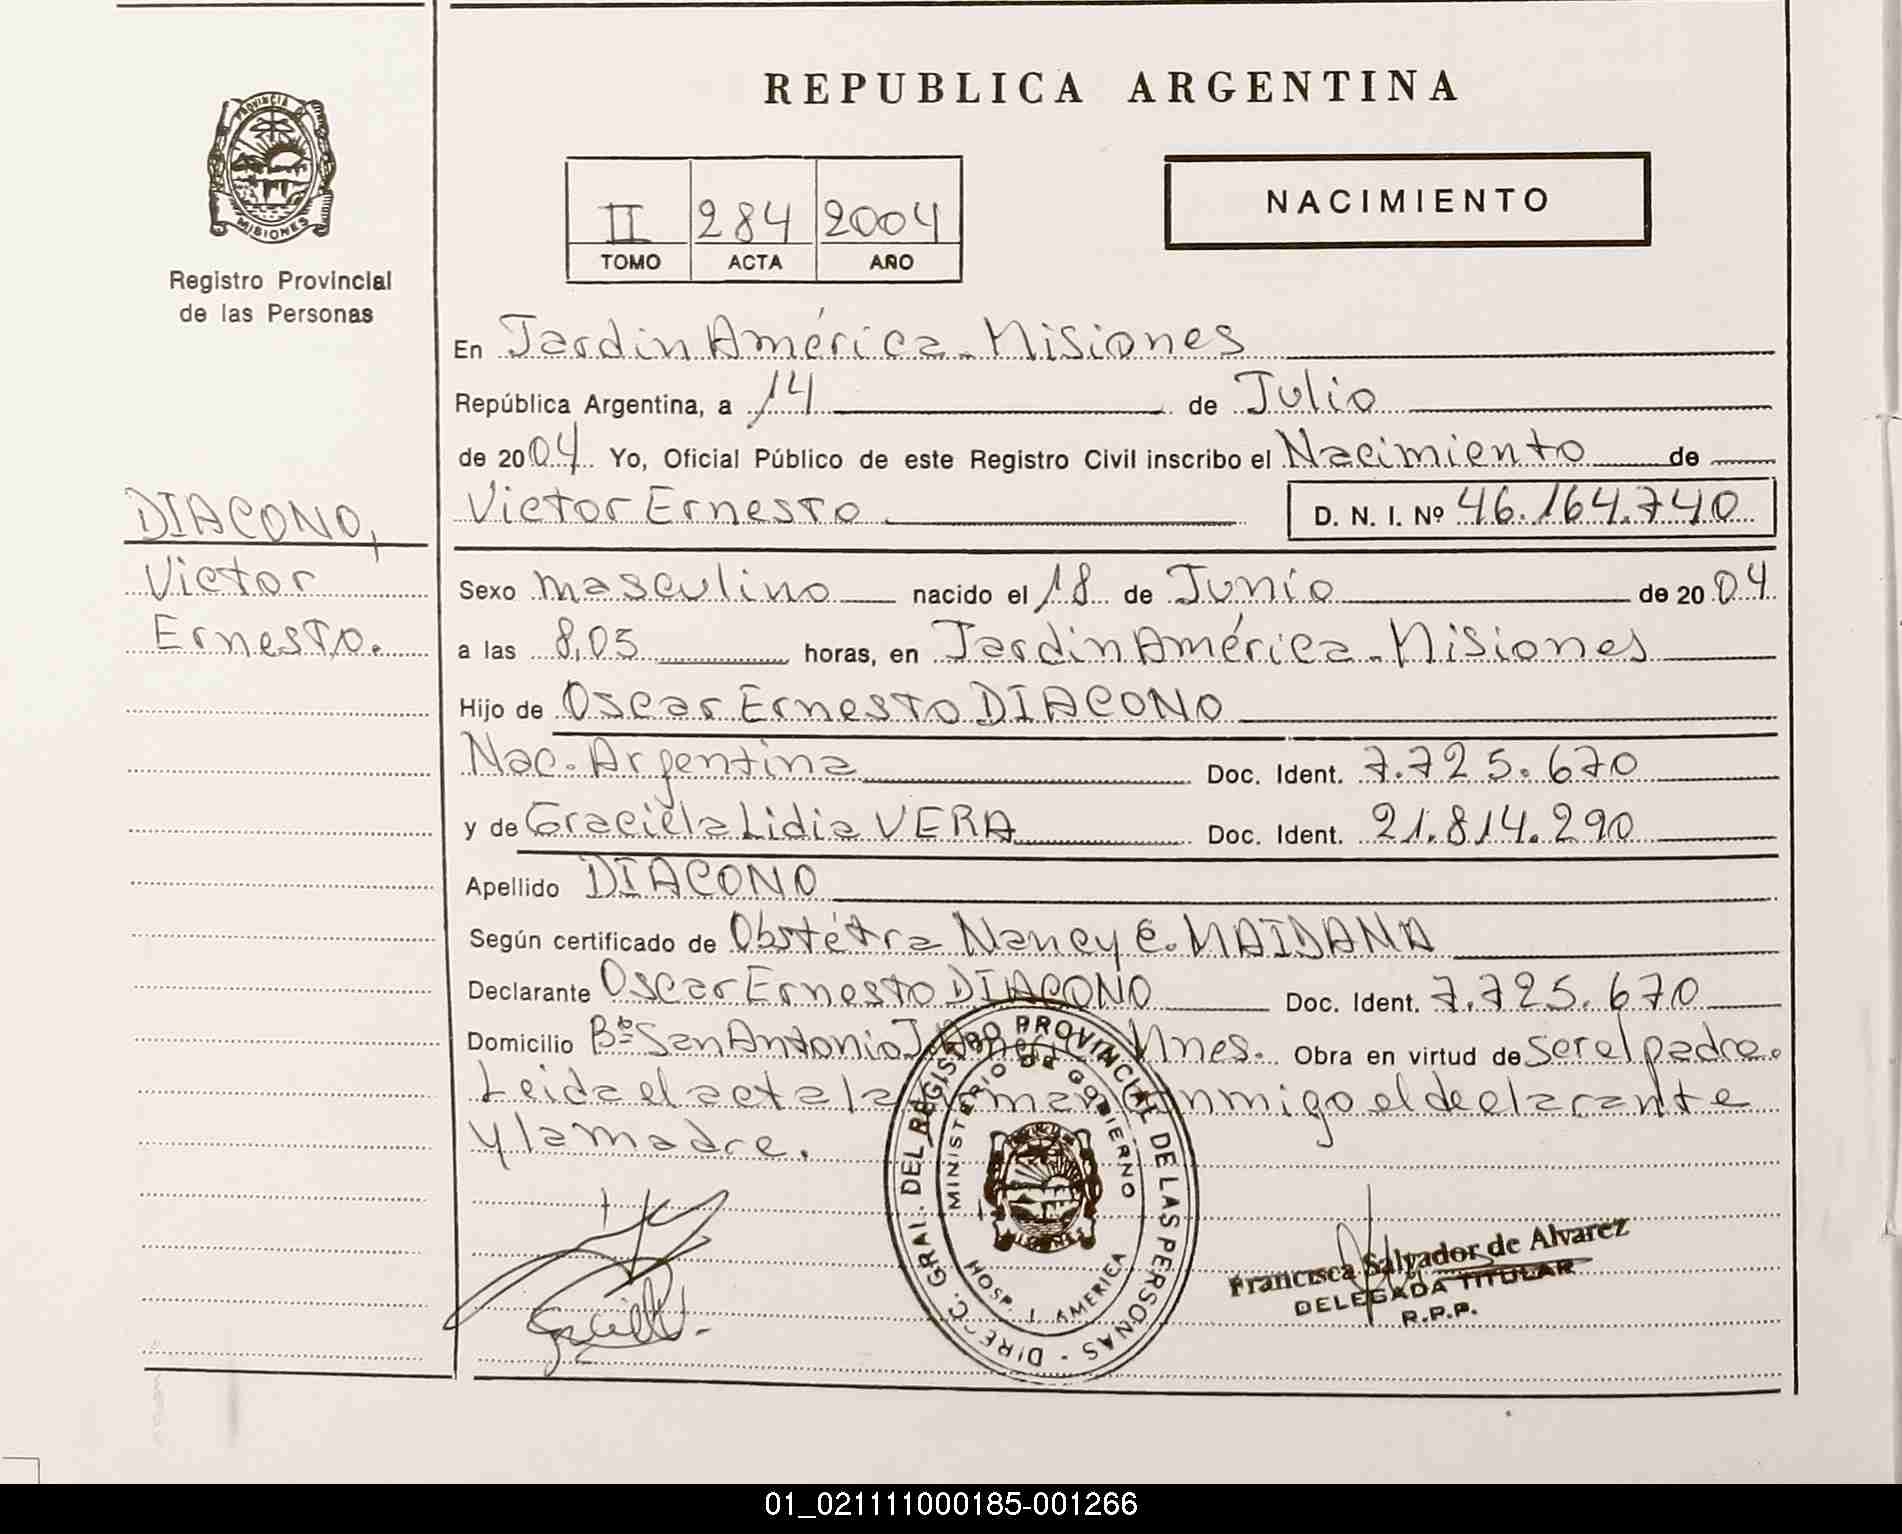 REPUBLICA ARGENTINA
PROVINCIA DE
MISIONES
Registro Provincial
de las Personas
II 284 2004
TOMO ACTA AÑO
NACIMIENTO
En Jardin América - Misiones
República Argentina, a 14 de Julio
de 2004 Yo, Oficial Público de este Registro Civil inscribo el Nacimiento de
Victor Ernesto D. N. I. Nº 46.164.740
DIACONO,
Victor
Ernesto.
Sexo masculino nacido el 18 de Junio de 2004
a las 8,05 horas, en Jardin América - Misiones
Hijo de Oscar Ernesto DIACONO
Nac. Argentina Doc. Ident. 7.725.670
y de Graciela Lidia VERA Doc. Ident. 21.814.290
Apellido DIACONO
Según certificado de Obstétra Nancy C. MAIDANA
Declarante Oscar Ernesto DIACONO Doc. Ident. 7.725.670
Domicilio Bº San Antonio J. Mnes. Obra en virtud de ser el padre.
Leida el acta la firman conmigo el declarante
y la madre.
DIRECC. GRAL. DEL REGISTRO PROVINCIAL DE LAS PERSONAS
MINISTERIO DE GOBIERNO
MISIONES
HOSP. J. AMERICA
Francisca Salvador de Alvarez
DELEGADA TITULAR
R.P.P.
01_021111000185-001266